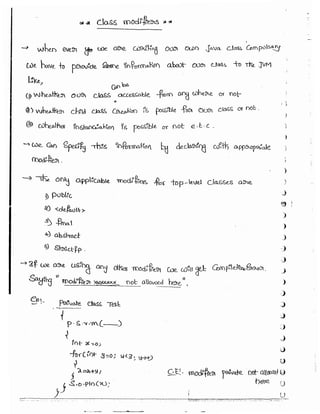 ** class modifiers **
→ when ever we are writing our own Java class compulsory
we have to provide some information about our class to the JVM
like,
(1) whether our class can be accessible from any where or not
(2) whether child class creation is possible for our class or not.
(3) whether instantiation is possible or not e.t.c.
→ we can specify this information by declaring with appropriate
modifier.
→ The only applicable modifiers for top-level classes are
1) public
2) <default>
3) final
4) abstract
5) strictfp.
→ If we are using any other modifier we will get
saying " modifier not allowed here".
Ex:- private class Test
{
p.s.v.m(——)
{
int x=0;
for(int y=0; y<3; y++)
{
x=x+y;
}
S.o.pln(x);
}
C.E:- modifier private not allowed
here